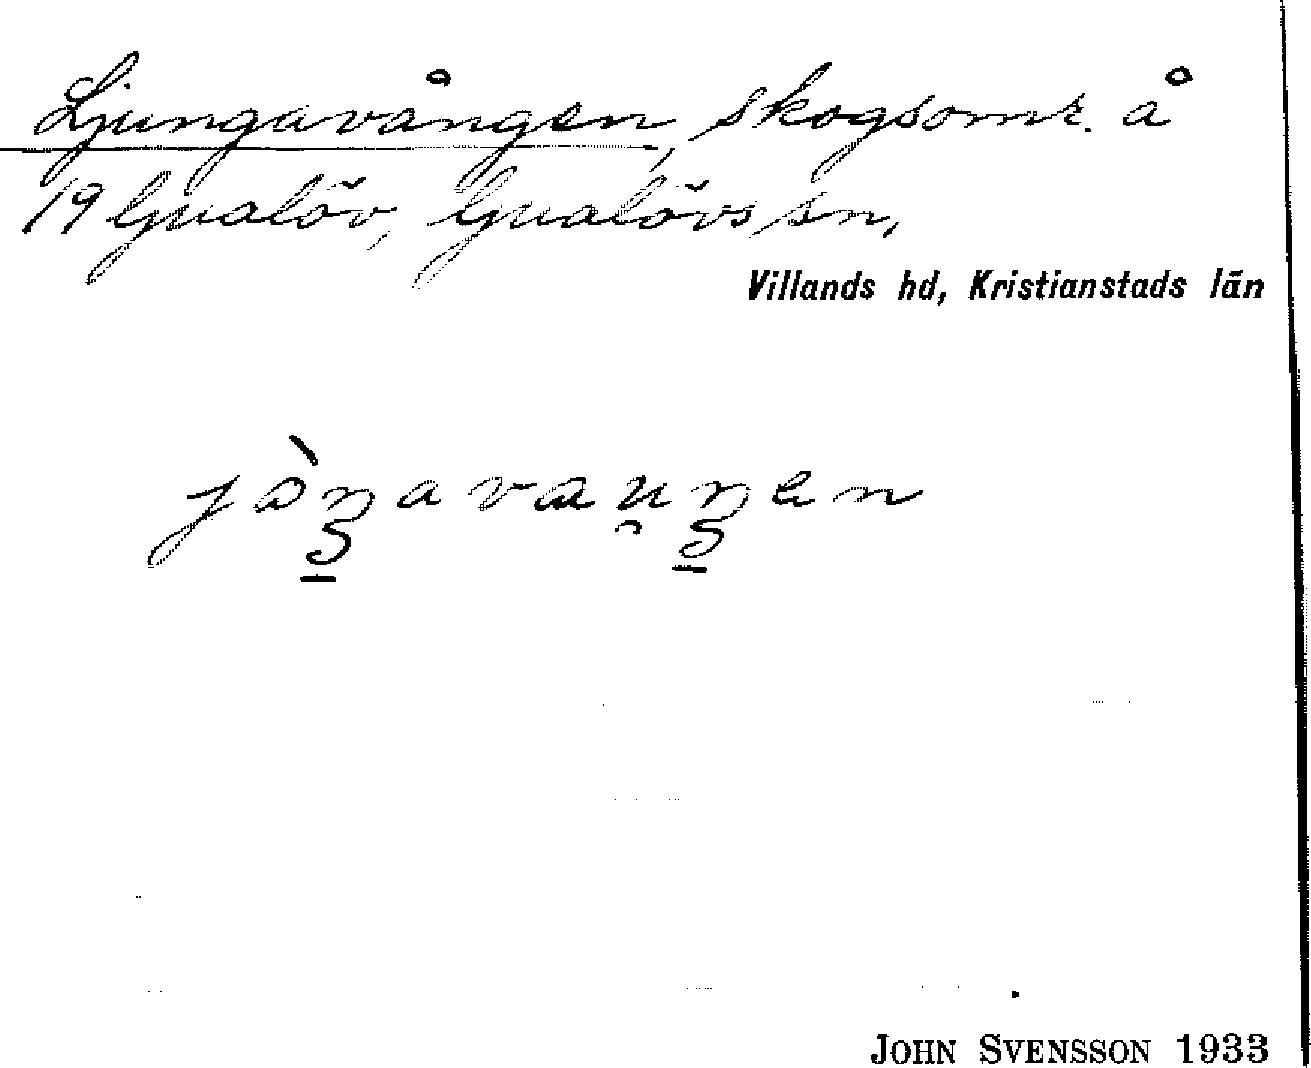 Ljungavången, skogsomr. å
19 Gualöv, Gualövs sn,
Villands hd, Kristianstads län
JOHN SVENSSON 1933